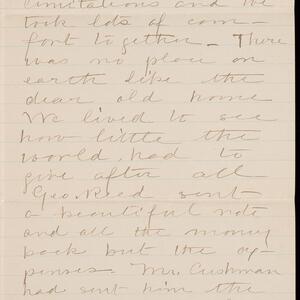 limitations and we
took lots of com-
fort together - There
was no place on
earth like the
dear old home
We lived to see
how little the
world, had to
give after all
Geo. Reed sent
a beautiful note
and all the money
back but the ex-
penses. Mr. Cushman
had sent him the